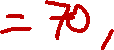 = 70,